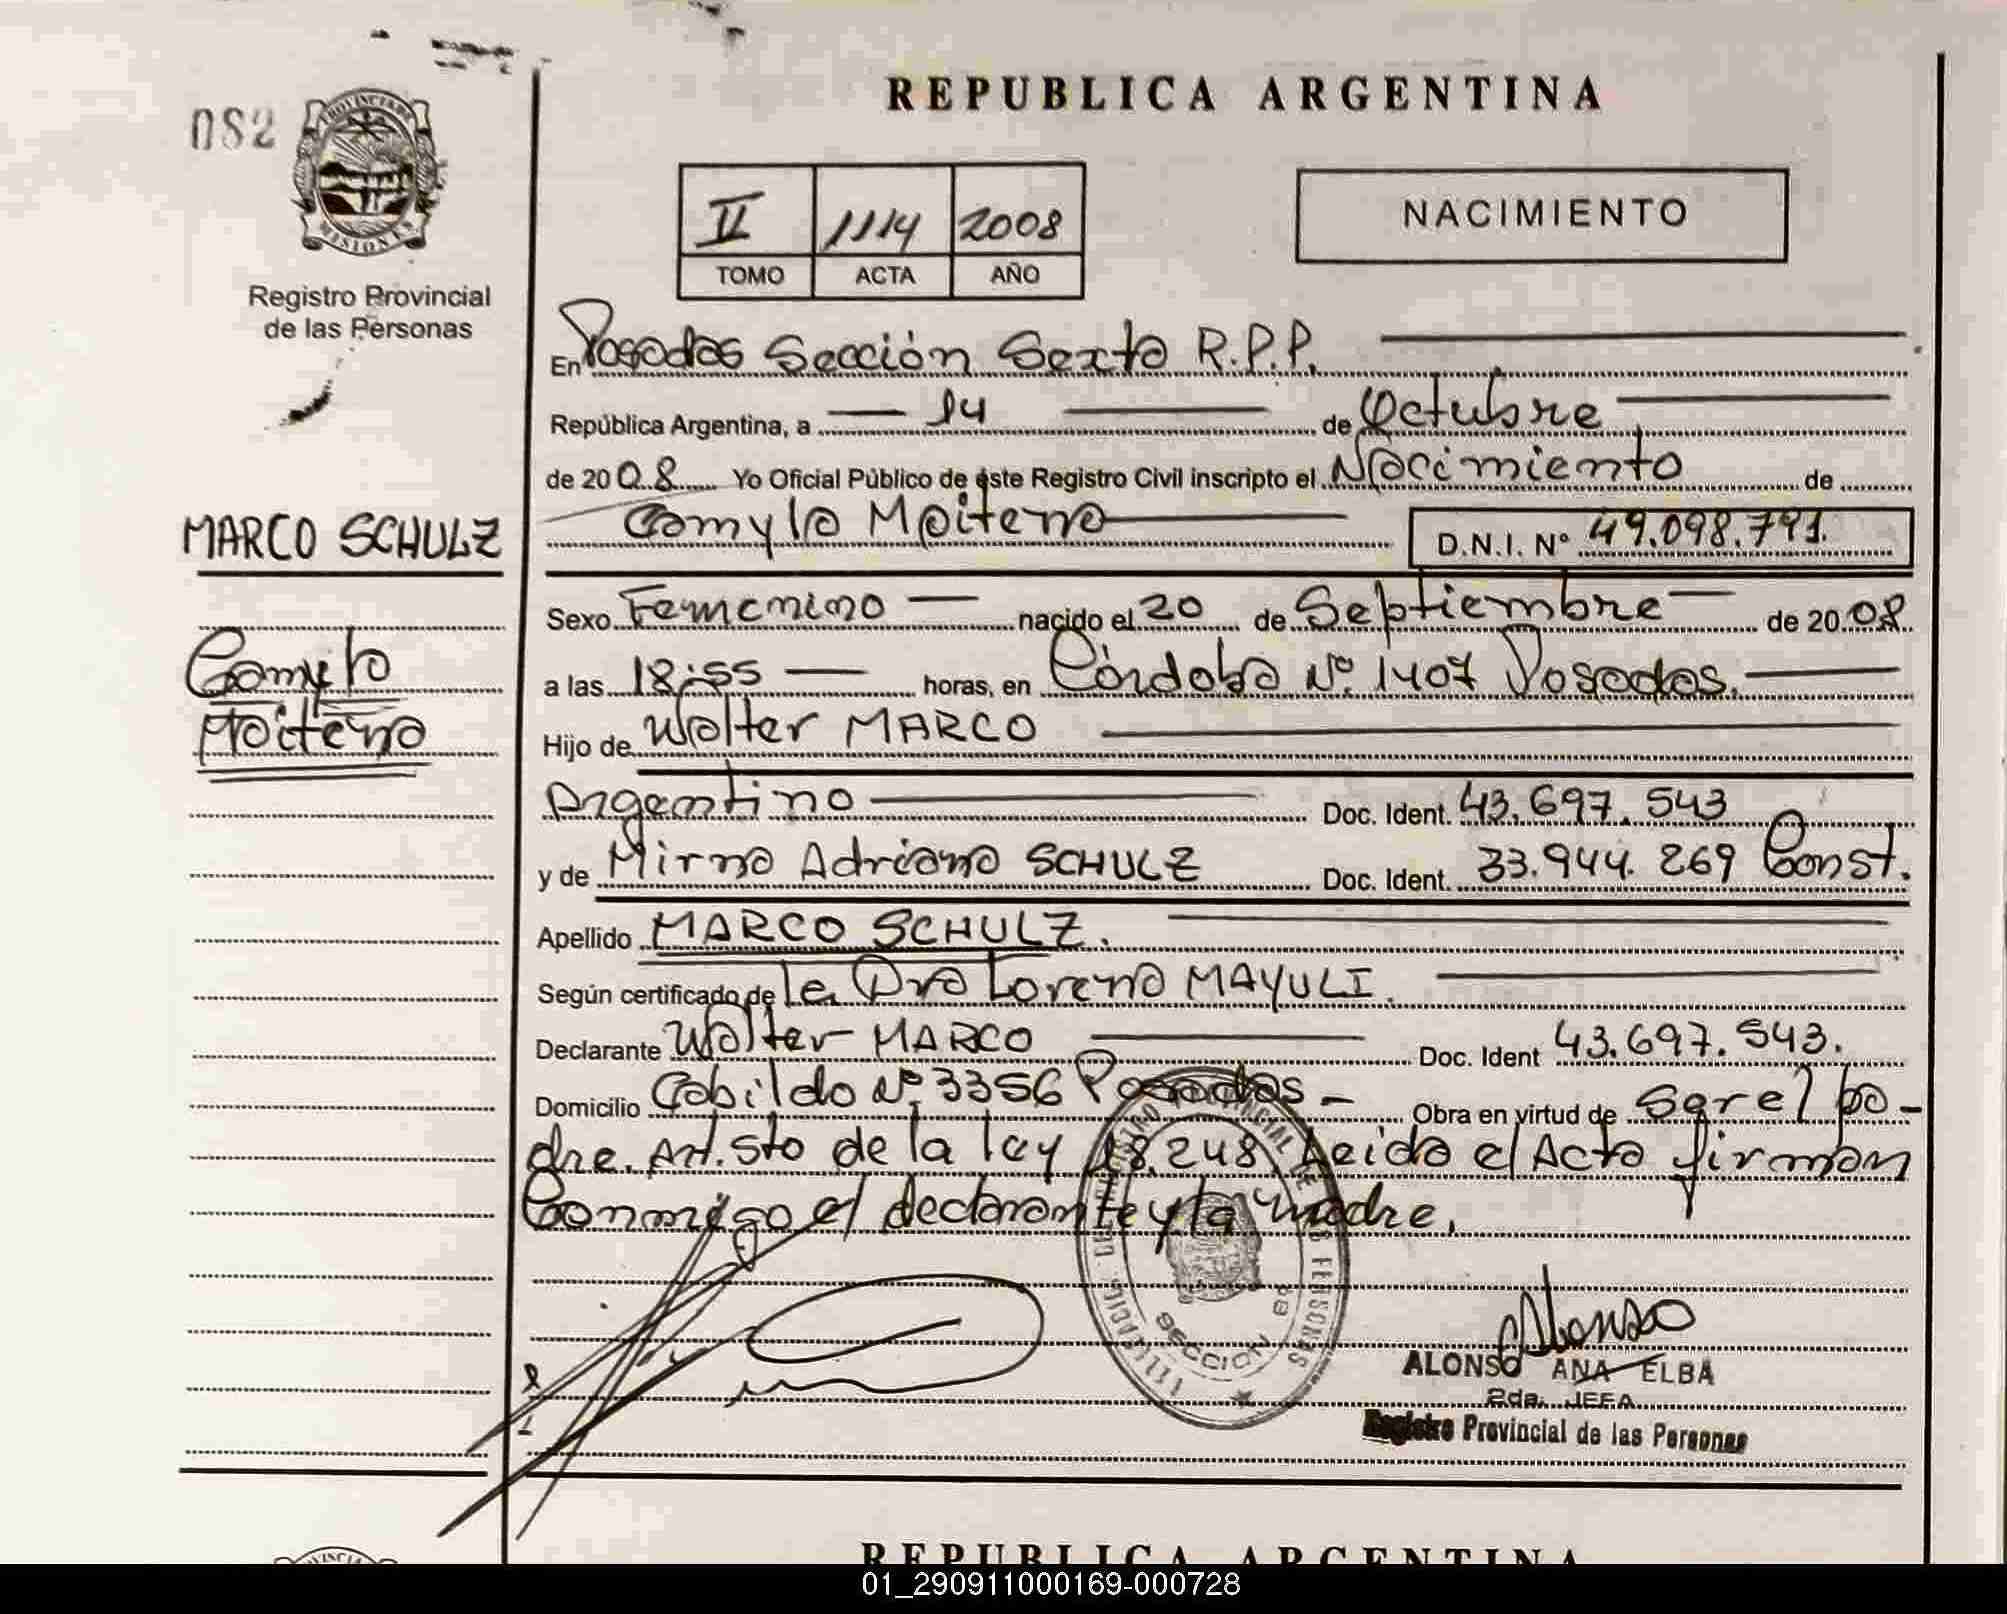 REPUBLICA ARGENTINA
082
PROVINCIA DE
MISIONES
Registro Provincial
de las Personas
II 1114 2008
TOMO ACTA AÑO
NACIMIENTO
En Posadas Sección Sexta R.P.P.
República Argentina, a 14 de Octubre
de 2008 Yo Oficial Público de éste Registro Civil inscripto el Nacimiento de
Camyla Maitena D.N.I. Nº 49.098.791.
MARCO SCHULZ
Camyla
Maitena
Sexo Femenino nacido el 20 de Septiembre de 2008
a las 18:55 horas, en Córdoba Nº 1407 Posadas.
Hijo de Walter MARCO
Argentino Doc. Ident. 43.697.543
y de Mirna Adriana SCHULZ Doc. Ident. 33.944.269 Const.
Apellido MARCO SCHULZ.
Según certificado de la Dra Lorena MAYULI.
Declarante Walter MARCO Doc. Ident 43.697.543.
Domicilio Cabildo Nº 3356 Posadas - Obra en virtud de ser el pa-
dre. Art. 5to de la ley 18.248. Leida el Acta firman
Conmigo el declarante y la madre.
SECCION
Alonso
ALONSO ANA ELBA
2da. JEFA
Registro Provincial de las Personas
REPUBLICA ARGENTINA
01_290911000169-000728